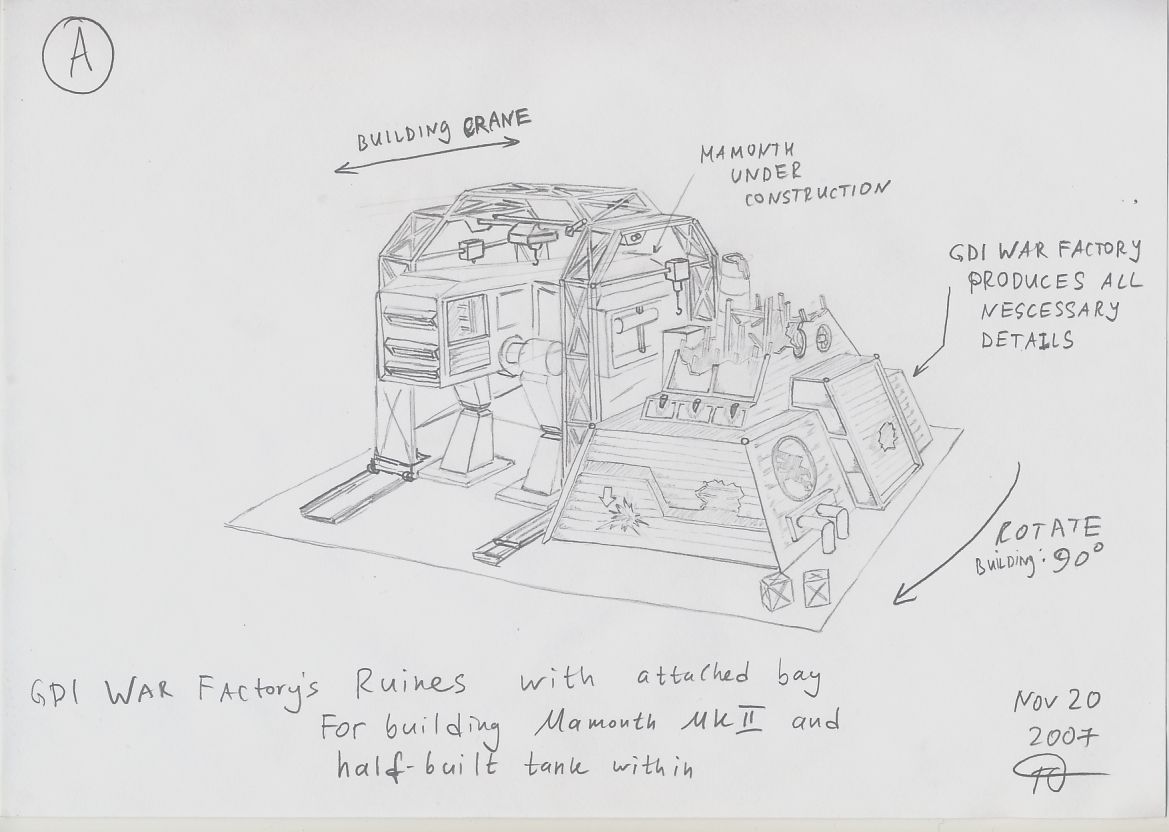 A
BUILDING CRANE
MAMONTH
UNDER
CONSTRUCTION
GDI WAR FACTORY
PRODUCES ALL
NESCESSARY
DETAILS
ROTATE
BUILDING: 90°
GDI WAR FACTORY'S RUINES with attached bay
For building Mamonth MK II and
half-built tank within
NOV 20
2007